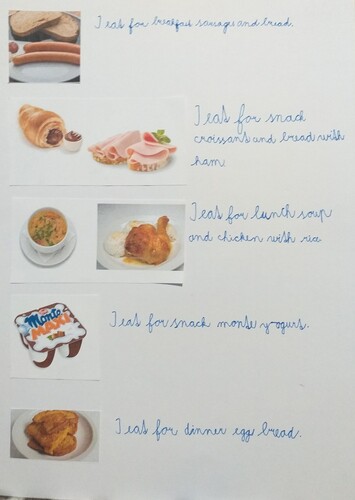 I eat for breakfast sausage and bread.
I eat for snack
croissant and bread with
ham.
I eat for lunch soup
and chicken with rice
Monte
MAXI
I eat for snack monte yogurt.
I eat for dinner egg bread.